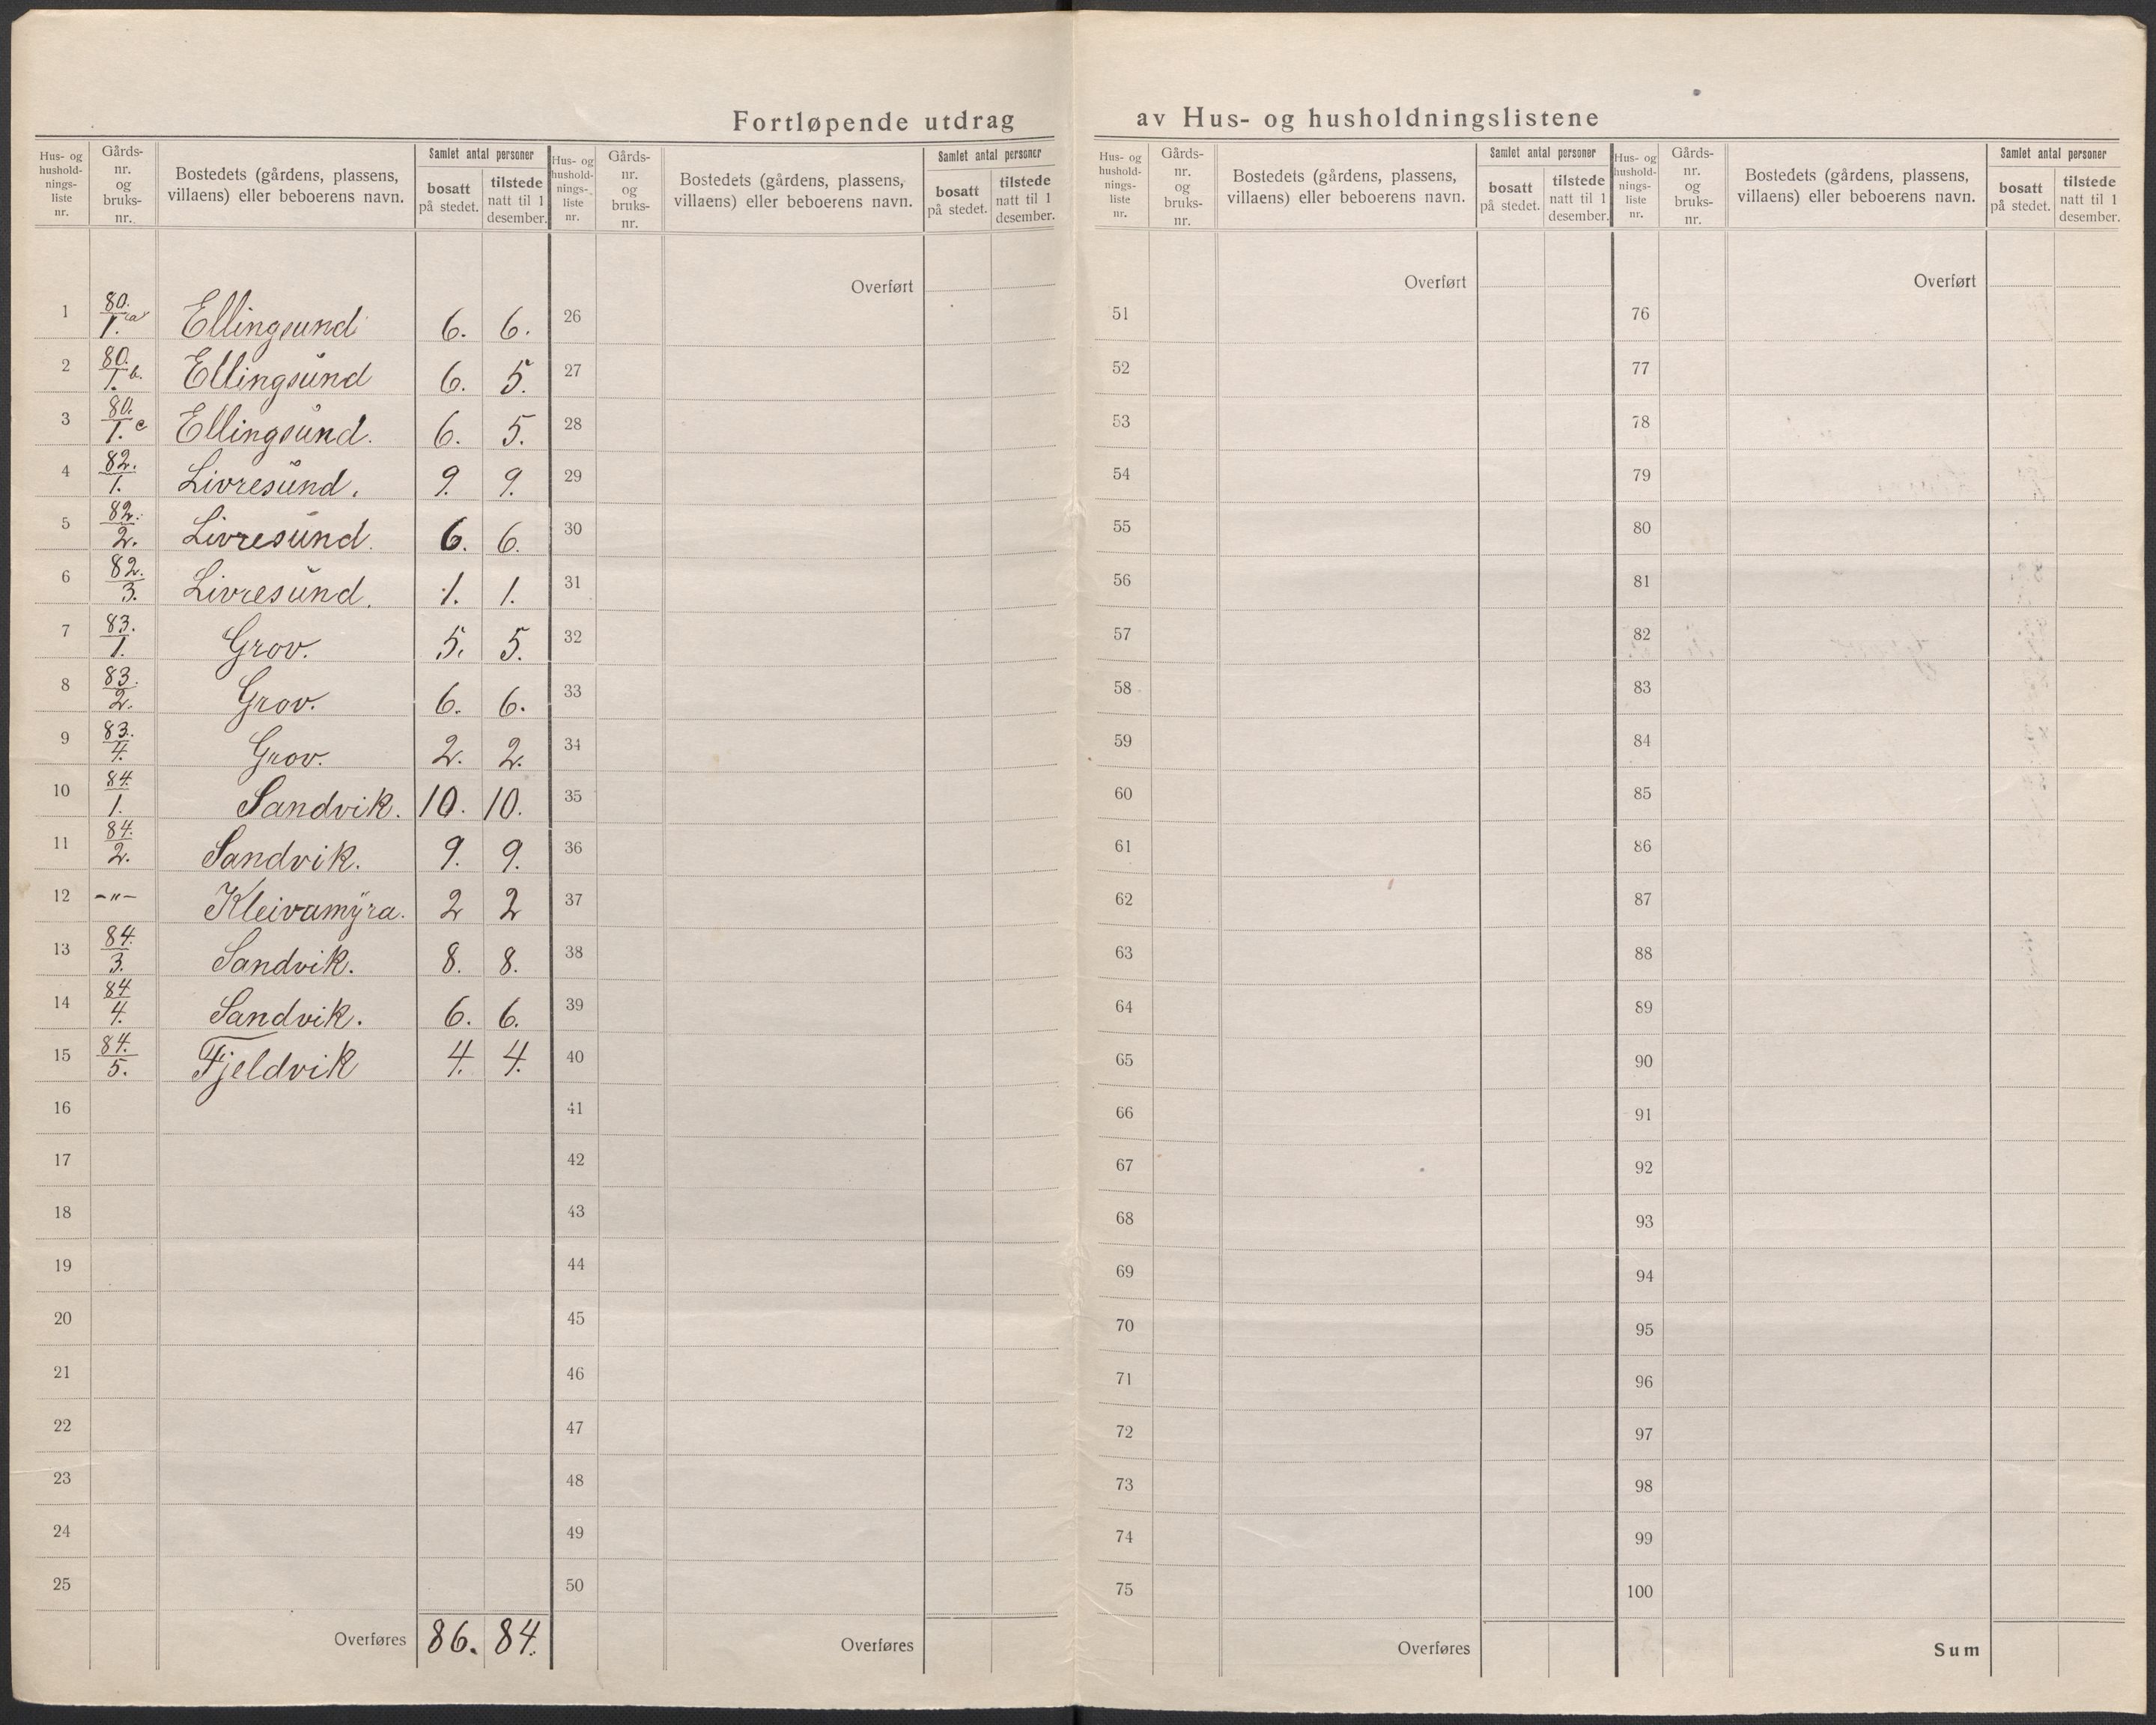 Fortløpende utdrag av Hus- og husholdningslistene
Hus- og husholdnings-liste nr. | Gårds-nr. og bruks-nr. | Bostedets (gårdens, plassens, villaens) eller beboerens navn. | Samlet antal personer | bosatt på stedet. | tilstede natt til 1 desember.
1 | 80./1. a | Ellingsund | 6. | 6.
2 | 80./1. b. | Ellingsund | 6. | 5.
3 | 80./1. c | Ellingsund. | 6. | 5.
4 | 82./1. | Livresund. | 9. | 9.
5 | 82./2. | Livresund. | 6. | 6.
6 | 82./3. | Livresund. | 1. | 1.
7 | 83./1. | Grov. | 5. | 5.
8 | 83./2. | Grov. | 6. | 6.
9 | 83./4. | Grov. | 2. | 2.
10 | 84./1. | Sandvik. | 10. | 10.
11 | 84./2. | Sandvik. | 9. | 9.
12 | -"- | Kleivamyra. | 2 | 2
13 | 84./3. | Sandvik. | 8. | 8.
14 | 84/4. | Sandvik. | 6. | 6.
15 | 84./5. | Fjeldvik | 4. | 4.
16
17
18
19
20
21
22
23
24
25
Overføres | 86. | 84.
Hus- og husholdnings-liste nr. | Gårds-nr. og bruks-nr. | Bostedets (gårdens, plassens, villaens) eller beboerens navn. | Samlet antal personer | bosatt på stedet. | tilstede natt til 1 desember.
Overført
26
27
28
29
30
31
32
33
34
35
36
37
38
39
40
41
42
43
44
45
46
47
48
49
50
Overføres
Hus- og husholdnings-liste nr. | Gårds-nr. og bruks-nr. | Bostedets (gårdens, plassens, villaens) eller beboerens navn. | Samlet antal personer | bosatt på stedet. | tilstede natt til 1 desember.
Overført
51
52
53
54
55
56
57
58
59
60
61
62
63
64
65
66
67
68
69
70
71
72
73
74
75
Overføres
Hus- og husholdnings-liste nr. | Gårds-nr. og bruks-nr. | Bostedets (gårdens, plassens, villaens) eller beboerens navn. | Samlet antal personer | bosatt på stedet. | tilstede natt til 1 desember.
Overført
76
77
78
79
80
81
82
83
84
85
86
87
88
89
90
91
92
93
94
95
96
97
98
99
100
Sum